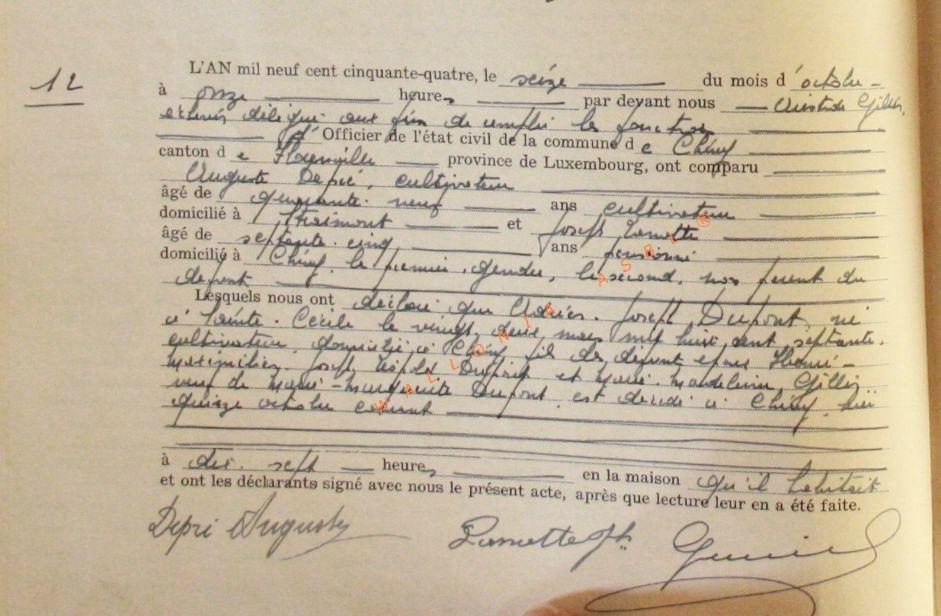 12
L'AN mil neuf cent cinquante-quatre, le seize du mois d'octobre
à onze heures par devant nous Gillet,
échevin délégué aux fins de remplir les fonctions
d'Officier de l'état civil de la commune de Chiny
canton de Florenville province de Luxembourg, ont comparu
Auguste Depré, cultivateur
âgé de quarante-neuf ans cultivateur
domicilié à Straimont et Joseph Lamotte
âgé de septante-cinq ans pensionné
domicilié à Chiny, le premier gendre, le second non parent du
défunt
Lesquels nous ont déclaré que Joseph Dupont, né
à Sainte-Cécile le vingt-deux mil huit cent septante.
cultivateur, domicilié à Chiny, fils des défunts époux
Maximilien-Joseph Dupont et Marie-Madeleine
veuf de Marie-Marguerite Dupont est décédé à Chiny, hier
quinze octobre courant
à dix-sept heures en la maison qu'il habitait
et ont les déclarants signé avec nous le présent acte, après que lecture leur en a été faite.
Depré Auguste Lamotte Jh.
WALLONIA ASBL ®